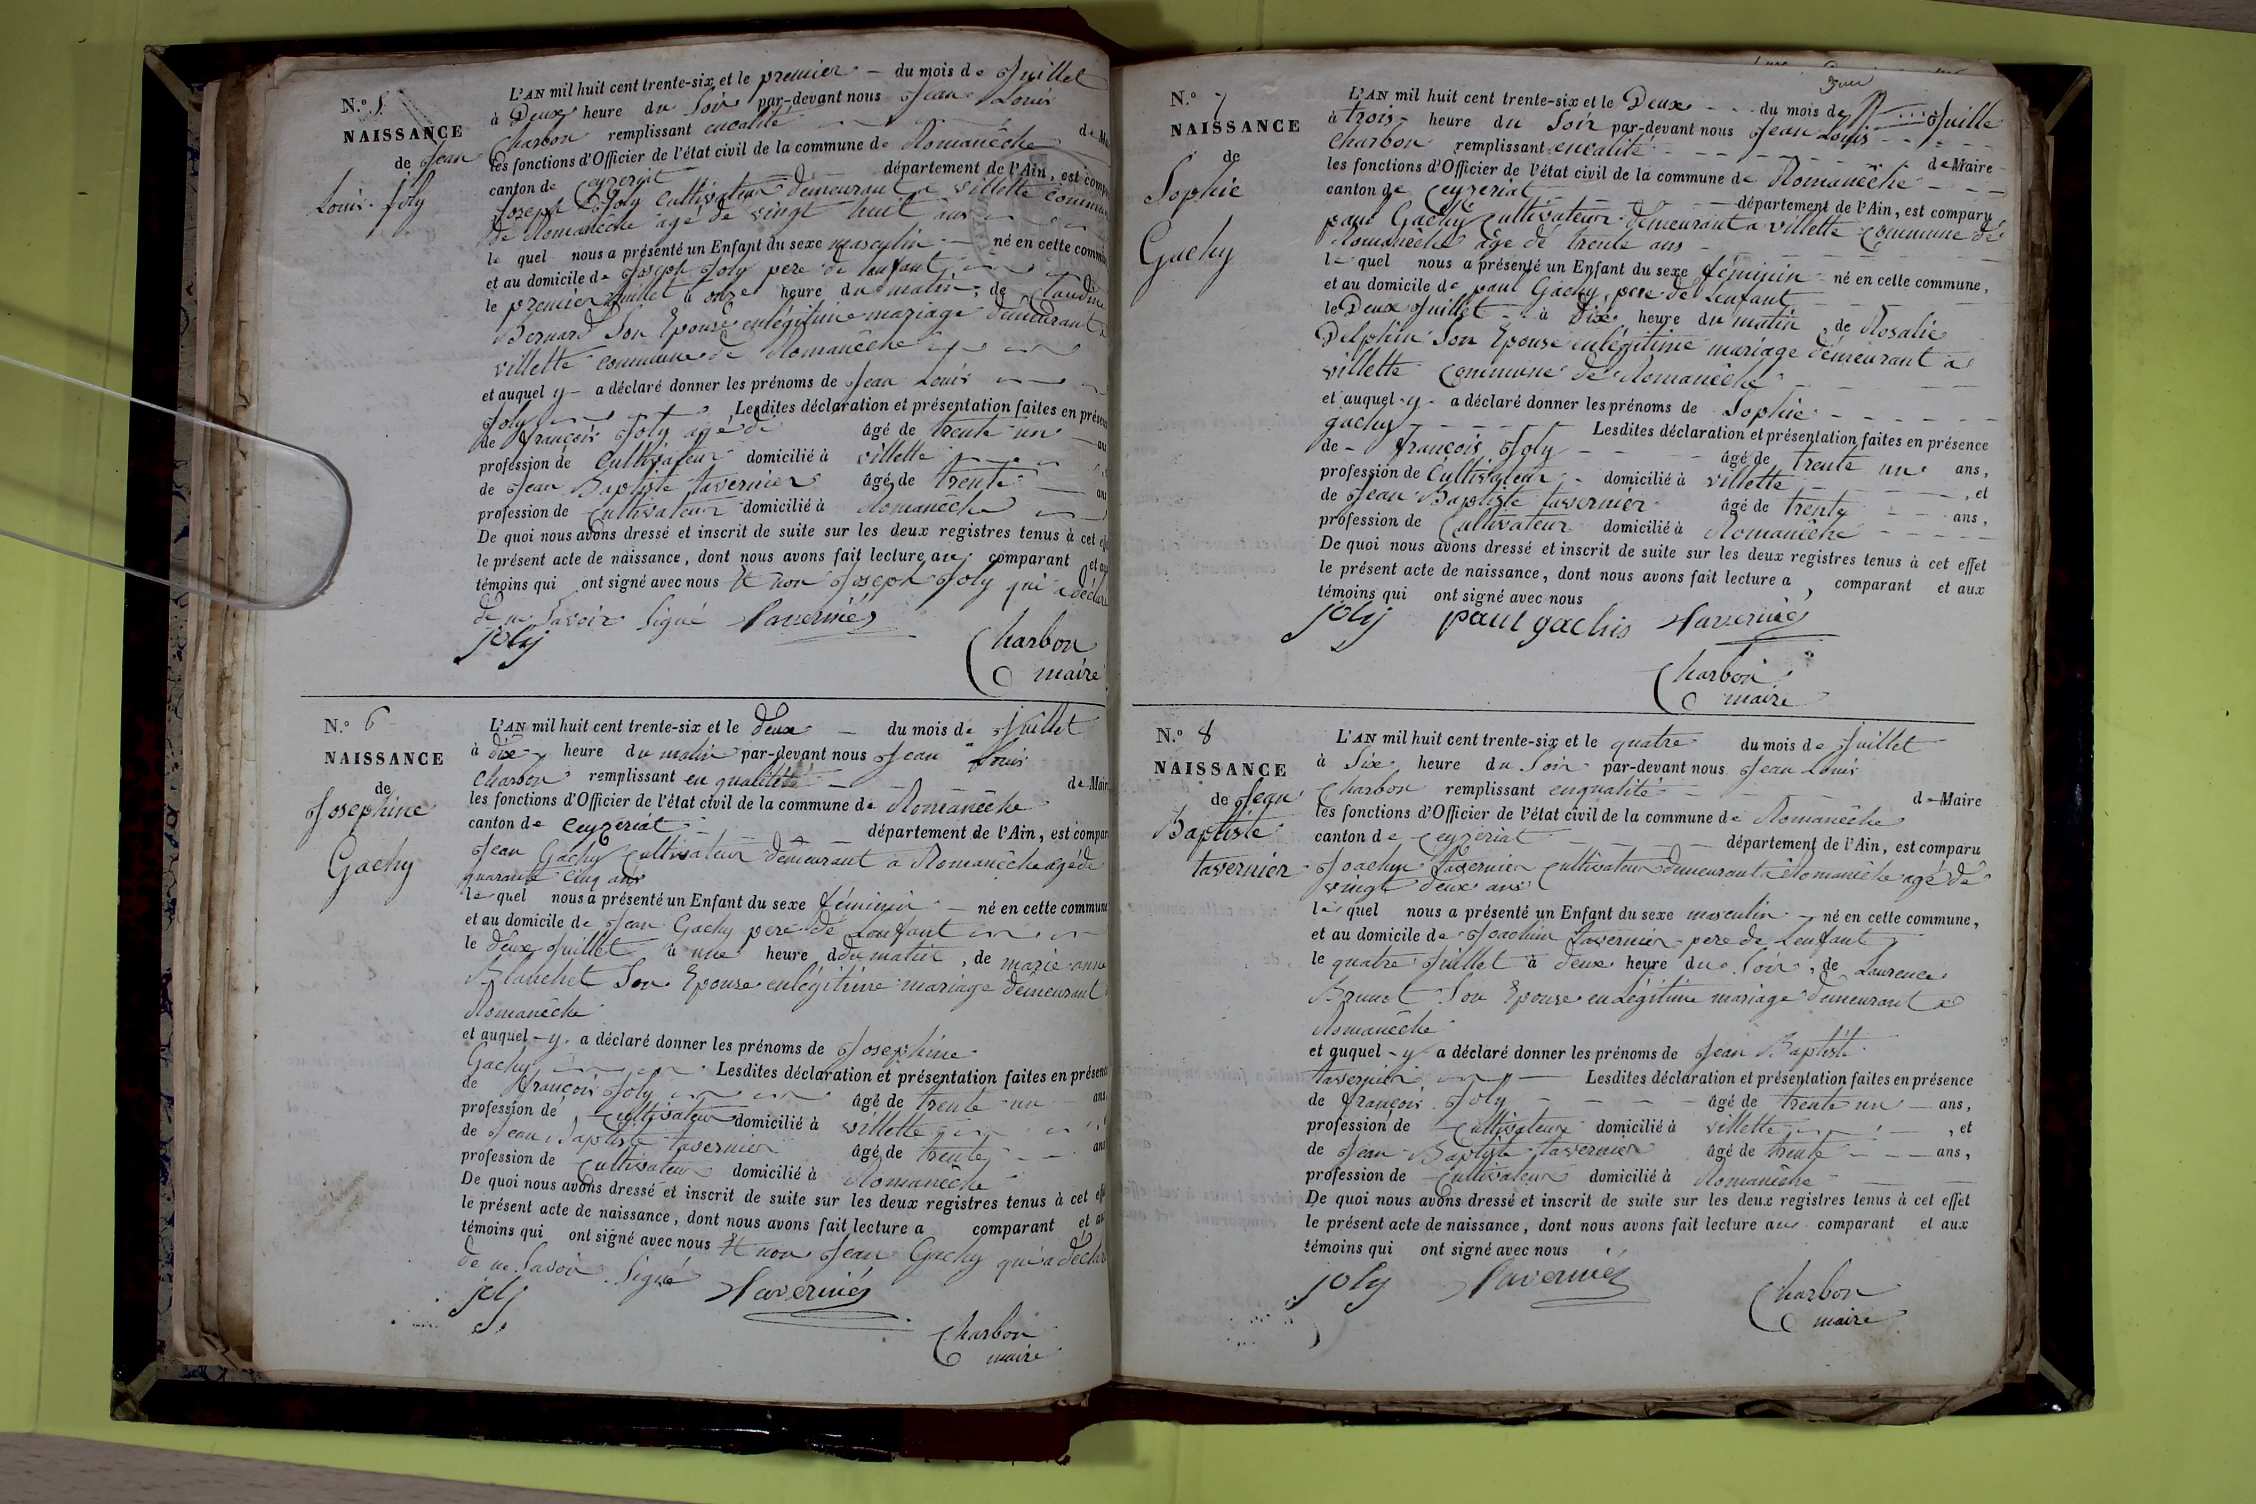 N.° 5
NAISSANCE
de Jean
Louis Joly
L'AN mil huit cent trente-six et le premier du mois de Juillet
à Deux heure du Soir par-devant nous Jean Louis
Charbon remplissant enqalité de
les fonctions d'Officier de l'état civil de la commune de Romanêche
canton de Ceyzeriat département de l'Ain, est comp
Joseph Joly Cultivateur demeurant a villette
de Romanêche agé de vingt huit ans
le quel nous a présenté un Enfant du sexe masculin né en cette comm
et au domicile de Joseph Joly pere de lenfant
le premier Juillet à onze heure du matin, de Claudine
Bernard Son Epouse enlégitime mariage demeurant a
villette commune de Romanêche
et auquel y a déclaré donner les prénoms de Jean Louis
Joly Lesdites déclaration et présentation faites en prése
de françois Joly agé de âgé de trente un
profession de Cultivateur domicilié à villette
de Jean Baptiste tavernier âgé de trente
profession de Cultivateur domicilié à Romanêche
De quoi nous avons dressé et inscrit de suite sur les deux registres tenus à cet
le présent acte de naissance, dont nous avons fait lecture au comparant et
témoins qui ont signé avec nous et non Joseph Joly qui a déclaré
de ne Savoir Signé Taverniés
joly
Charbon
maire
N.° 6
NAISSANCE
de
Josephine
Gachy
L'AN mil huit cent trente-six et le deux du mois de Juillet
à dix heure du matin par-devant nous Jean Louis
Charbon remplissant en qualité de Mair
les fonctions d'Officier de l'état civil de la commune de Romanêche
canton de Ceyzériat département de l'Ain, est compar
Jean Gachy Cultivateur demeurant a Romanêche agé de
quarante cinq ans
le quel nous a présenté un Enfant du sexe féminin né en cette commune
et au domicile de Jean Gachy pere de Lenfant
le deux Juillet à une heure ddu matin, de marie anne
Blanchet Son Epouse enlégitime mariage demeurant
Romanêche
et auquel y a déclaré donner les prénoms de Josephine
Gachy Lesdites déclaration et présentation faites en présenc
de françois Joly âgé de trente un ans
profession de Cultivateur domicilié à villette
de Jean Baptiste tavernier âgé de trente ans
profession de Cultivateur domicilié à Romanêche
De quoi nous avons dressé et inscrit de suite sur les deux registres tenus à cet
le présent acte de naissance, dont nous avons fait lecture a comparant et au
témoins qui ont signé avec nous et non Jean Gachy qui a déclar
de ne Savoir Signé Taverniés
joly
Charbon
maire
N.° 7
NAISSANCE
de
Sophie
Gachy
L'AN mil huit cent trente-six et le Deux du mois de Juille
à trois heure du Soir par-devant nous Jean Louis
Charbon remplissant enqalité de Maire
les fonctions d'Officier de l'état civil de la commune de Romanêche
canton de Ceyzeriat département de l'Ain, est comparu
paul Gachy Cultivateur demeurant a villette Commune de
Romanêche agé de trente ans
le quel nous a présenté un Enfant du sexe féminin né en cette commune,
et au domicile de paul Gachy, pere de Lenfant
le Deux Juillet à dix heure du matin, de Rosalie
Delphin Son Epouse enlégitime mariage démeurant a
villette Commune de Romanêche
et auquel y a déclaré donner les prénoms de Sophie
gachy Lesdites déclaration et présentation faites en présence
de françois Joly âgé de trente un ans,
profession de Cultivateur domicilié à villette, et
de Jean Baptiste tavernier âgé de trente ans,
profession de Cultivateur domicilié à Romanêche
De quoi nous avons dressé et inscrit de suite sur les deux registres tenus à cet effet
le présent acte de naissance, dont nous avons fait lecture a, comparant et aux
témoins qui ont signé avec nous
joly paul gachis Taverniés
Charbon
maire
N.° 8
NAISSANCE
de Jean
Baptiste
tavernier
L'AN mil huit cent trente-six et le quatre du mois de Juillet
à Six heure du Soir par-devant nous Jean Louis
Charbon remplissant enqualité de Maire
les fonctions d'Officier de l'état civil de la commune de Romanêche
canton de Ceyzeriat département de l'Ain, est comparu
Joachim tavernier Cultivateur demeurant a Romanêche agé de
vingt deux ans
le quel nous a présenté un Enfant du sexe masculin né en cette commune,
et au domicile de Joachim tavernier pere de Lenfant
le quatre Juillet à deux heure du Soir, de Laurence
Brunet Son Epouse en Légitime mariage demeurant a
Romanêche
et auquel y a déclaré donner les prénoms de Jean Baptiste
tavernier Lesdites déclaration et présentation faites en présence
de françois Joly âgé de trente un ans,
profession de Cultivateur domicilié à villette, et
de Jean Baptiste tavernier âgé de trente ans,
profession de Cultivateur domicilié à Romanêche
De quoi nous avons dressé et inscrit de suite sur les deux registres tenus à cet effet
le présent acte de naissance, dont nous avons fait lecture au comparant et aux
témoins qui ont signé avec nous
joly Taverniés
Charbon
maire